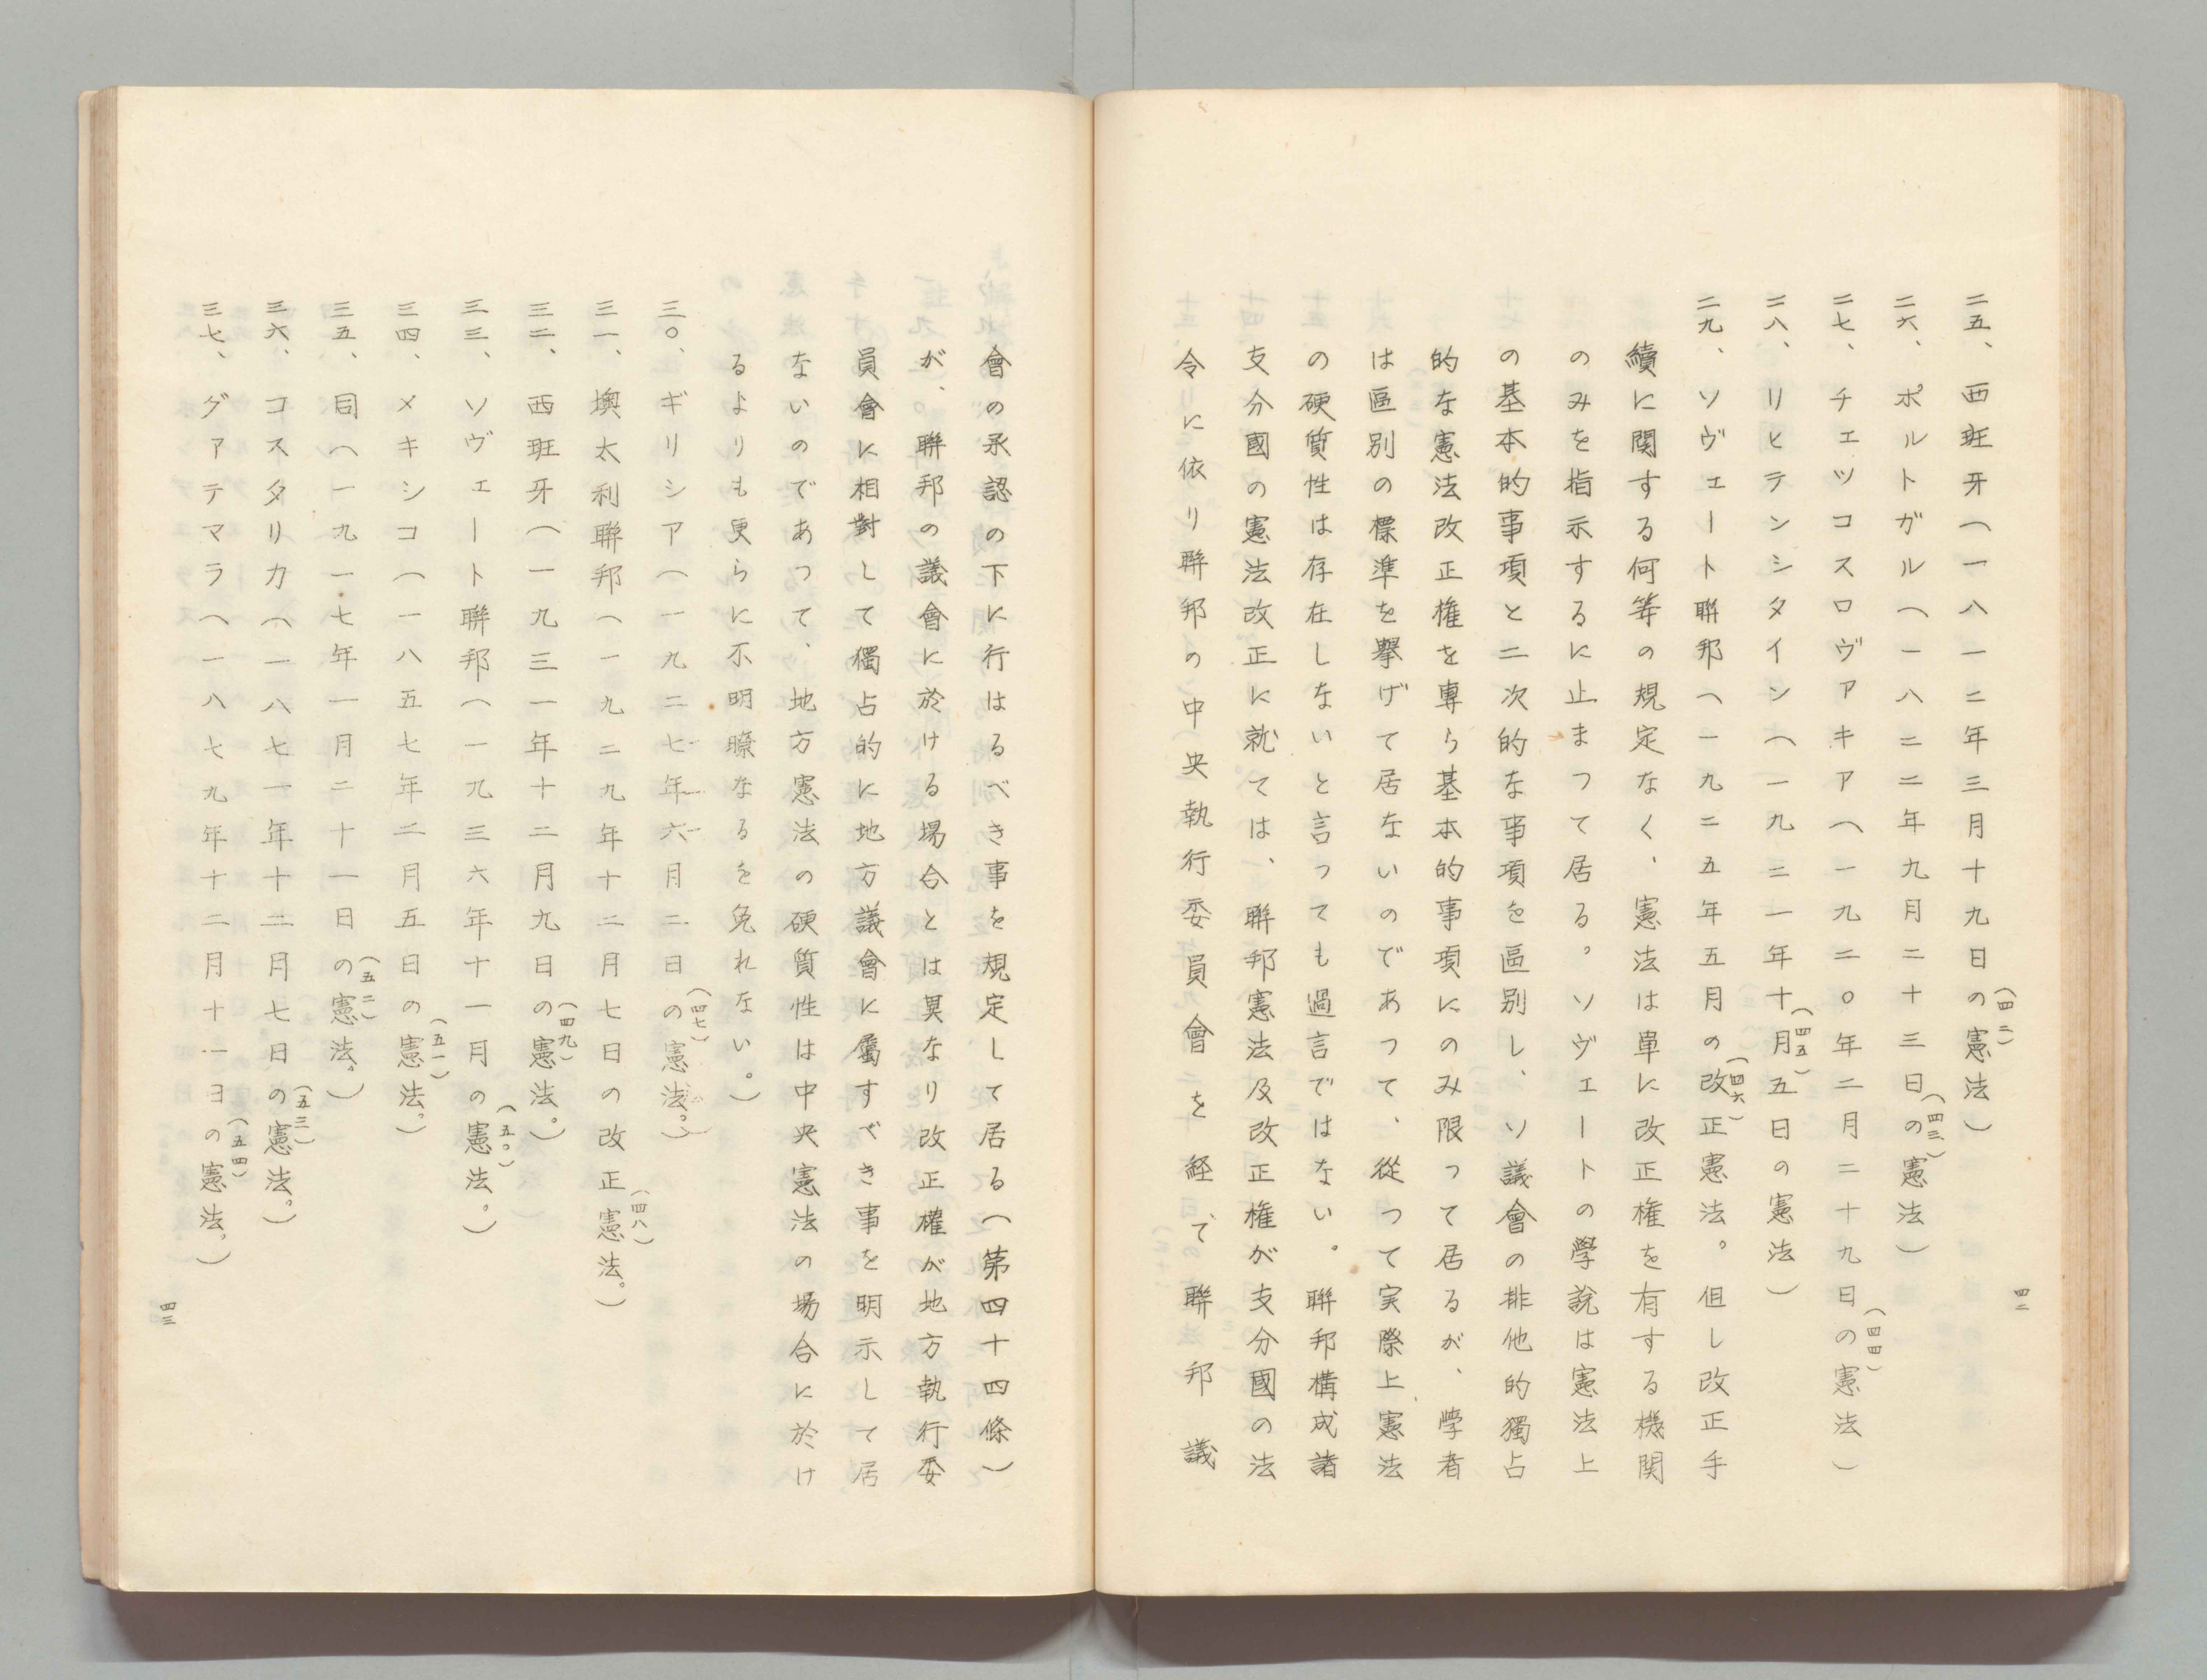 二五、西班牙(一八一二年三月十九日の憲法)
(四二)
二六、ポルトガル(一八二二年九月二十三日の憲法)
(四三)
二七、チェツコスロヴアキア(一九二〇年二月二十九日の憲法)
(四四)
二八、リヒテンシタイン(一九二一年十月五日の憲法)
(四五)
二九、ソヴェート聯邦(一九二五年五月の改正憲法。但し改正手
(四六)
續に関する何等の規定なく、憲法は単に改正権を有する機関
のみを指示するに止まつて居る。ソヴェートの學説は憲法上
の基本的事項と二次的な事項を區別し、ソ議會の排他的獨占
的な憲法改正権を専ら基本的事項にのみ限つて居るが、學者
は區別の標準を擧げて居ないのであつて、從つて実際上憲法
の硬質性は存在しないと言つても過言ではない。聯邦構成諸
支分國の憲法改正に就ては、聯邦憲法及改正権が支分國の法
令に依り聯邦の中央執行委員會を経て、聯邦議
四二
會の承認の下に行はるべき事を規定して居る(第四十四條)
が、聯邦の議會に於ける場合とは異なり改正權が地方執行委
員會に相對して獨占的に地方議會に屬すべき事を明示して居
ないのであつて、地方憲法の硬質性は中央憲法の場合に於け
るよりも更らに不明瞭なるを免れない。)
三〇、ギリシア(一九二七年六月二日の憲法。)
(四七)
三一、墺太利聯邦(一九二九年十二月七日の改正憲法。)
(四八)
三二、西班牙(一九三一年十二月九日の憲法。)
(四九)
三三、ソヴェート聯邦(一九三六年十一月の憲法。)
(五〇)
三四、メキシコ(一八五七年二月五日の憲法。)
(五一)
三五、同(一九一七年一月三十一日の憲法。)
(五二)
三六、コスタリカ(一八七一年十二月七日の憲法。)
(五三)
三七、グァテマラ(一八七九年十二月十一日の憲法。)
(五四)
四三